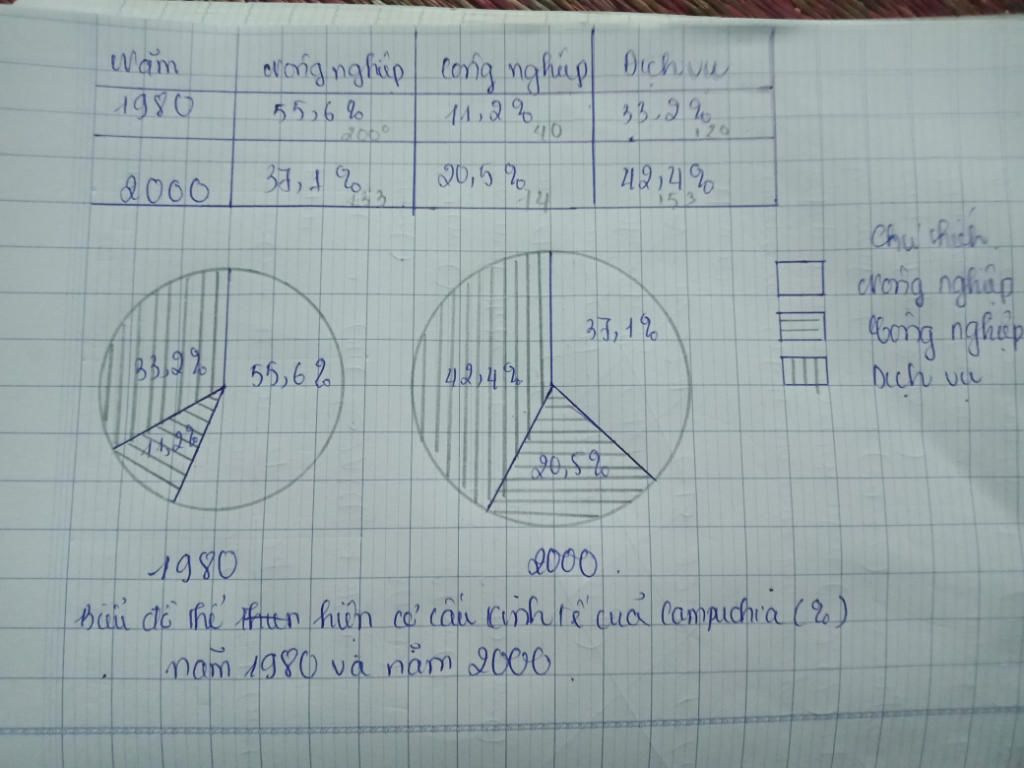 Năm Nông nghiệp Công nghiệp Dịch vụ
1980 55,6% 11,2% 33,2%
200° 40 120
2000 37,1% 20,5% 42,4%
133 74 153
Chú thích
Nông nghiệp
Công nghiệp
Dịch vụ
33,2% 55,6%
11,2%
37,1%
42,4%
20,5%
1980
2000.
Biểu đồ thể hiện cơ cấu kinh tế của Campuchia (%)
năm 1980 và năm 2000.